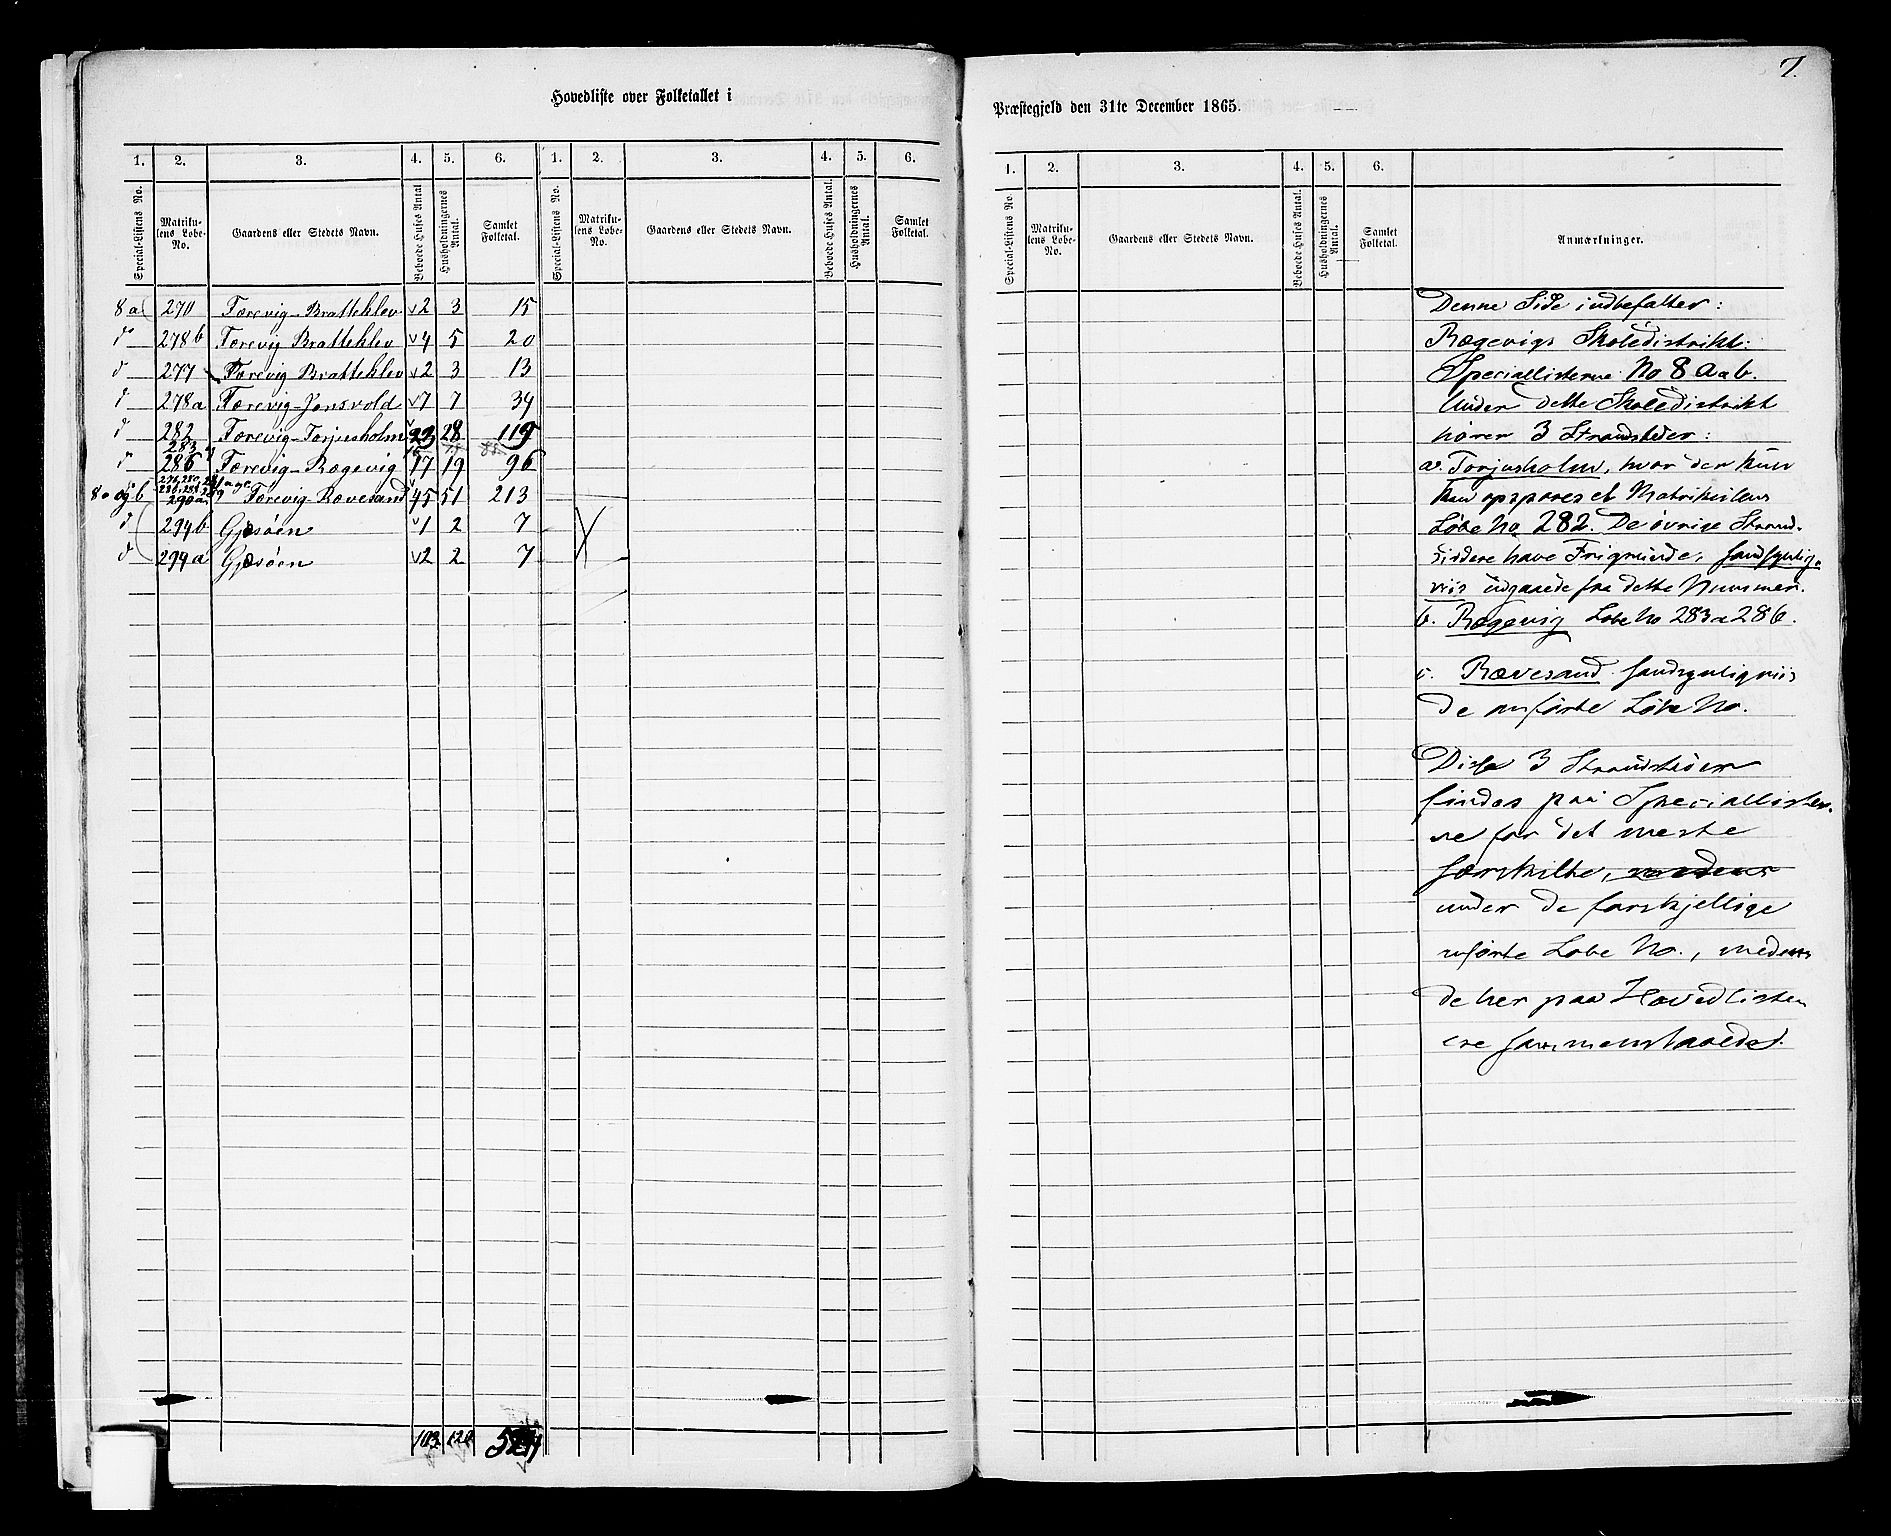 7.
Hovedliste over Folketallet i
Præstegjeld den 31te December 1865.
1. 2. 3. 4. 5. 6. 1. 2. 3. 4. 5. 6.
Special-Listens No. Matrikulens Løbe-No. Gaardens eller Stedets Navn. Beboede Huses Antal Husholdningernes Antal. Samlet Folketal. Special-Listens No. Matrikulens Løbe-No. Gaardens eller Stedets Navn. Beboede Huses Antal. Husholdningernes Antal. Samlet Folketal.
8 a 270 Færevig-Bratteklev 2 3 15
d 278b Færevig Bratteklev 4 5 20
d 277 Færevig Bratteklev 2 3 13
d 278a Færevig-Jonsvold 7 7 34
d 282 Færevig-Torjusholm 23 28 119
283
d 286 Færevig-Rægevig 17 19 96
8 a og b 290a Færevig-Rævesand 45 51 213
d 294b Gjæsøen 1 2 7
d 294a Gjæsøen 2 2 7
103 120
1. 2. 3. 4. 5. 6.
Special-Listens No. Matrikulens Løbe-No. Gaardens eller Stedets Navn. Beboede Huses Antal. Husholdningernes Antal. Samlet Folketal. Anmærkninger.
Denne Side indbefatter:
Rægevigs Skoledistrikt:
Speciallisterne No 8 a a b.
Under dette Skoledistrikt
hører 3 Strandsteder:
a. Torjusholm, hvor der kun
kan opspores et Matrikulens
Løbe No 282. De øvrige Strand-
siddere have Frigrunde, sandsynlig-
viis udgaaede fra dette Nummer.
b. Rægevig Løbe No 283 a 286.
c. Rævesand sandsynligviis
de anførte Løbe No.
Disse 3 Strandsteder
findes paa Speciallister-
ne for det meste
særskilte,
under de forskjellige
anførte Løbe No., medens
de her paa Hovedlisten
ere sammenstavede.